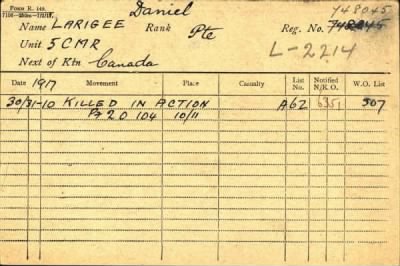 Form R. 149.
Daniel
748045
Name LARIGEE Rank Pte Reg. No. 748045
Unit 5 CMR
L-2214
Next of Kin Canada
Date 1917 Movement Place Casualty List No. Notified N/K.O. W.O. List
30/31-10 KILLED IN ACTION A62 6351 507
Pt 2 O 104 10/11